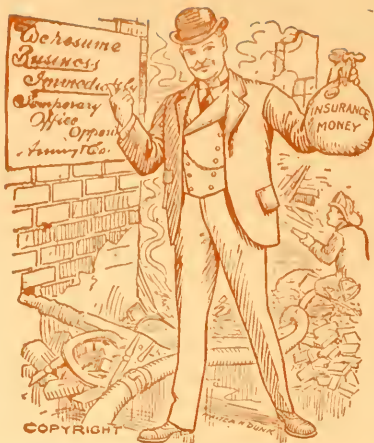 We resume
Business
Immediately
Temporary
Office
Oppo
Army & Co.
INSURANCE
MONEY
COPYRIGHT